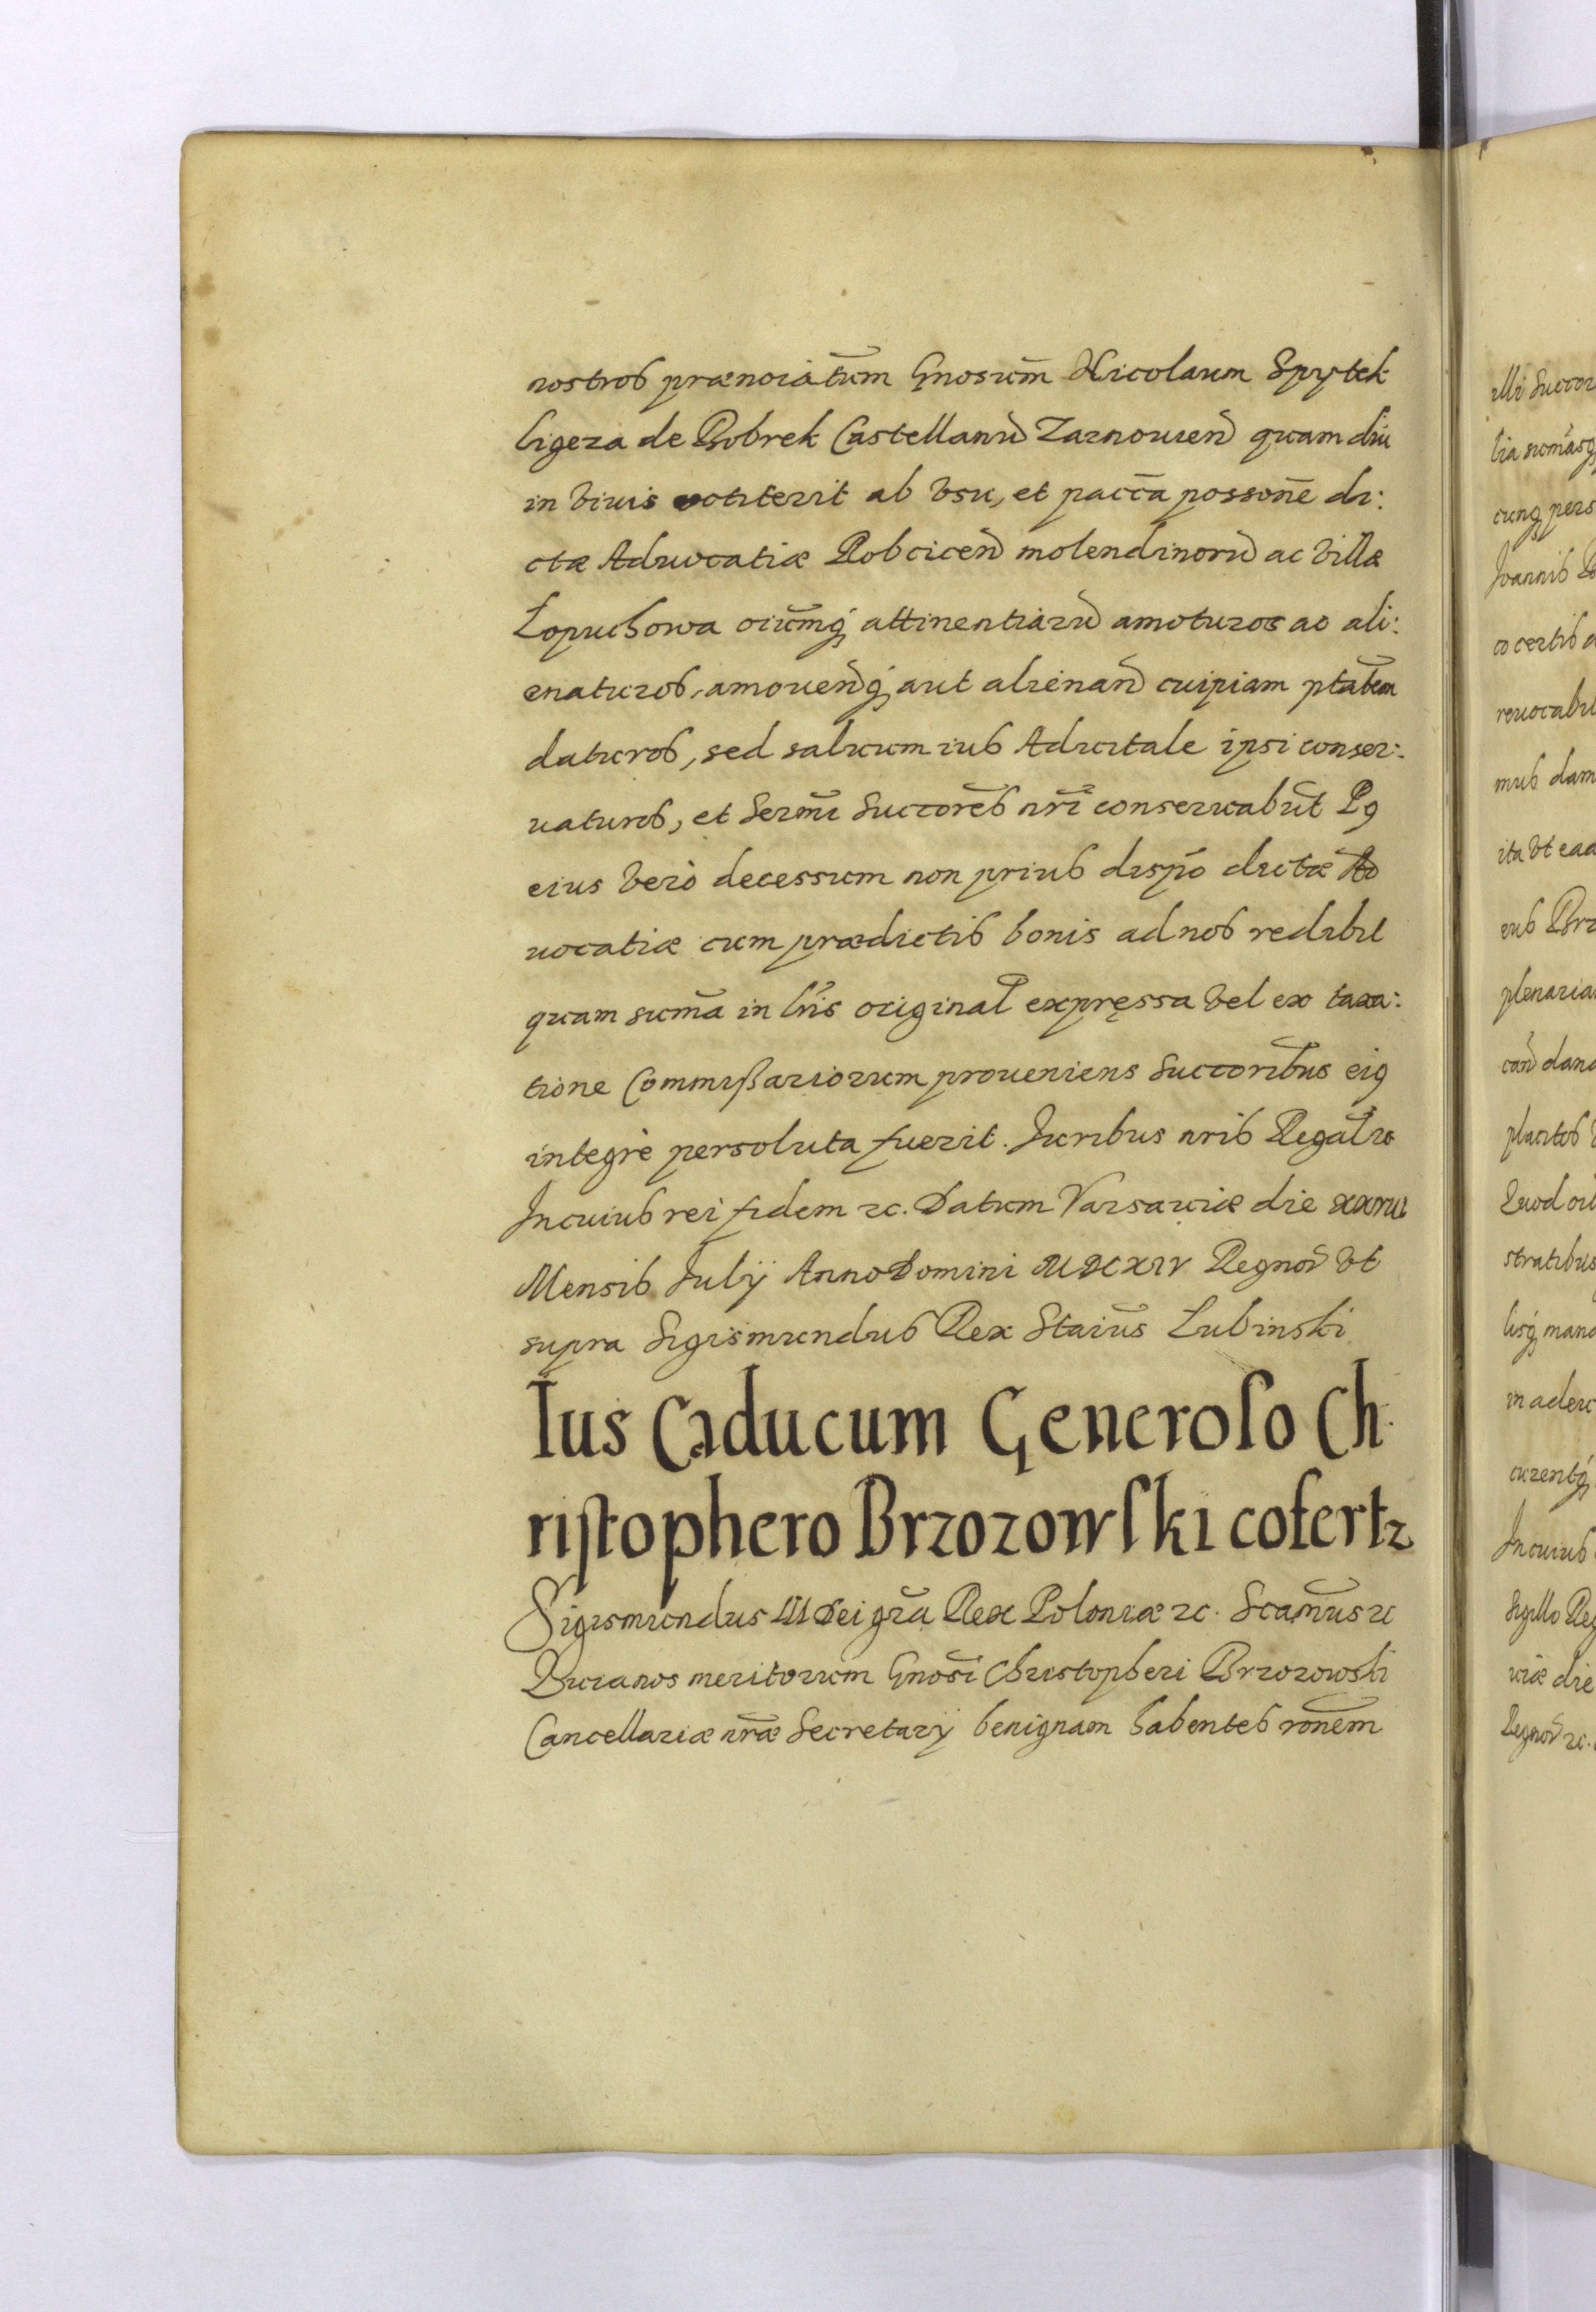 nostros prænoiatūm Gnosum̄ Nicolaum Spytek
Ligeza de Bobrek Castellanū Zarnouien̄ quam diu
in viuis extiterit ab vsu, et paccā possonē di:
ctæ Aduocatiæ Robcicen̄ molendinorū ac villæ
Łopuchowa oiūmq̨ attinentiarū amoturos ac ali:
enaturos, amouendq̨ aut alienand̄ cuipiam ptātem
daturos, sed saluum ius Aduitale ipsi conser:
uaturos, et Sermī Succorēs nrī conseruabūt Pꝯ
eius verò decessum non prius dispō dictæ Ad
uocatiæ cum prædictis bonis ad nos redibit
quam sum̄a in lrīs original̄ expręssa vel ex taxa:
tione Commißariorum proueniens Succoribus eiꝯ
integrè persoluta fuerit. Juribus nrīs Regal̄
In cuius rei fidem zc. Datum Varsauiæ die
Mensis Julÿ Anno Domini MDCXIV Regnor̄ vt
supra Sigismundus Rex Staiūs Łubinski
Ius Caducum Generoso Ch:
ristophero Brzozowski cofertz
Sigismundus III Dei grā Rex Poloniæ zc. Scamūs zc
Quia nos meritorum Gnosī Christopheri Brzozowski
Cancellariæ nræ Secretarÿ benignam habentes ronēm
illi Succor
cunq̨ pers
Joannis
co certis
reuocabil
mus dam
ita vt ea
plenaria
placitos
Quod
stratibus
lisq̨ man
In cuius
Sigillo Reg
uiæ die
Regnor̄ zc.